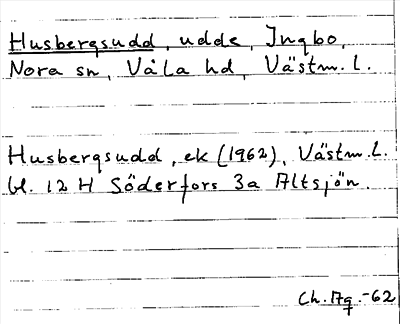 Husbergsudd, udde, Ingbo,
Nora sn, Våla hd, Västm. l.
Husbergsudd, ek (1962), Västm. l.
bl. 12 H Söderfors 3a Altsjön.
Ch. Ag. -62